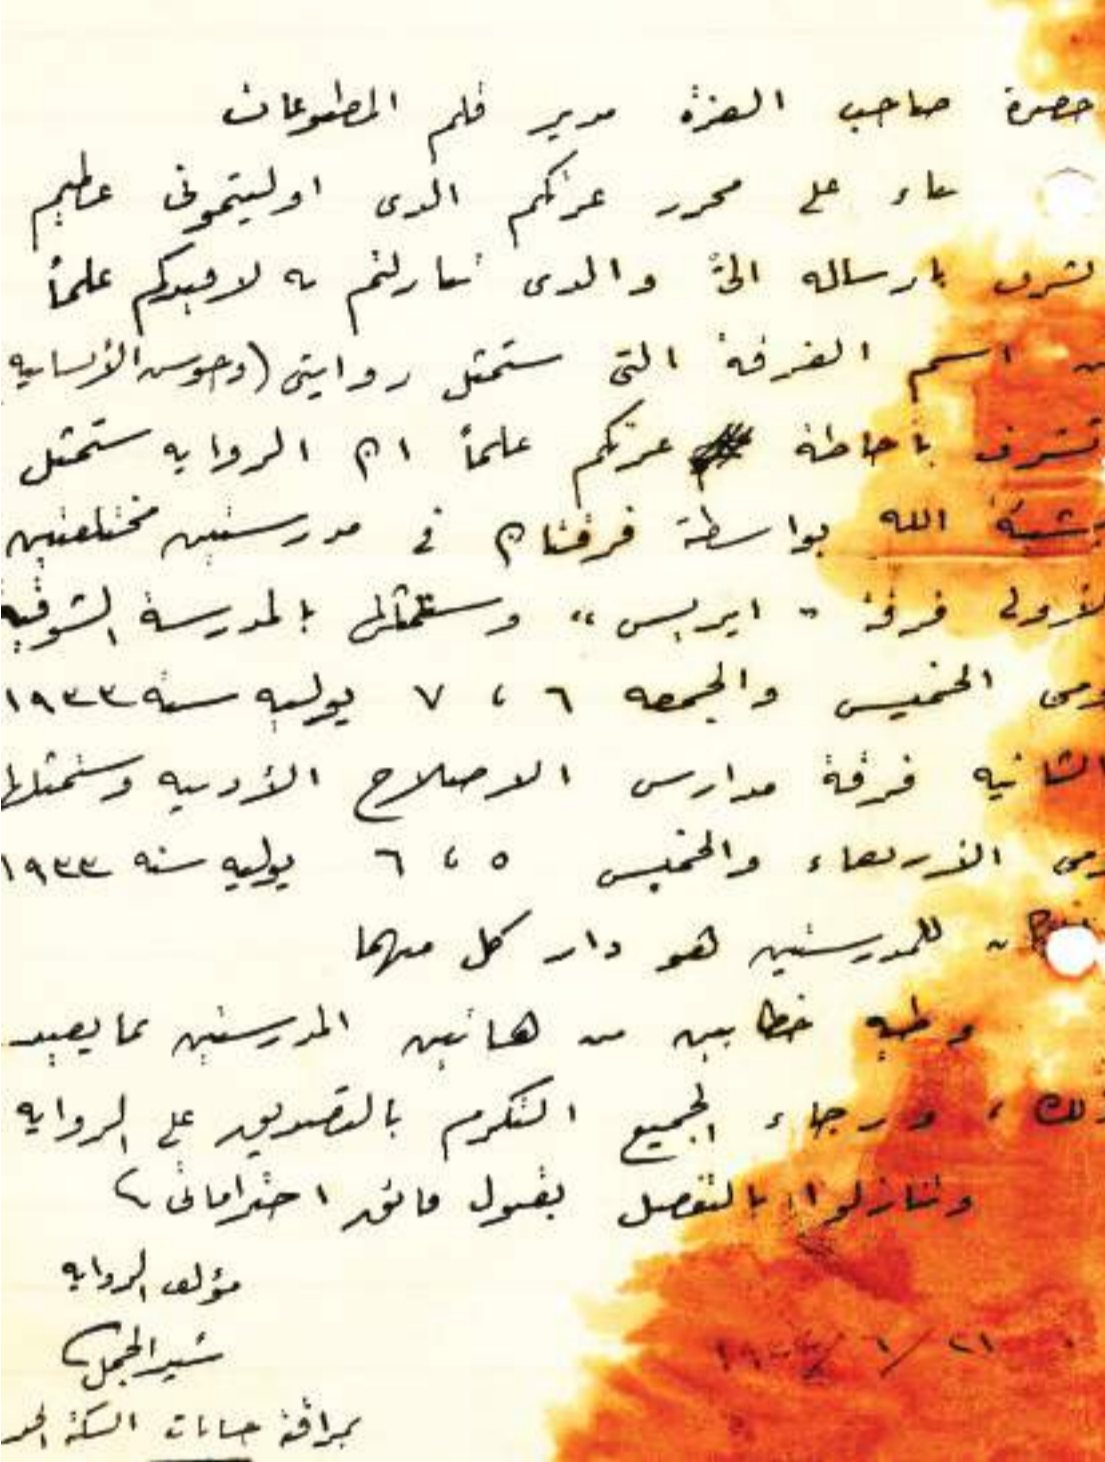 حضرة صاحب العزة مدير قلم المطبوعات
بناء على محرر عزتكم الذى اوليتمونى عظيم
الشرف بارساله الىّ والذى تنازلتم به لافيدكم علماً
من اسم الفرقة التى ستمثل روايتى (وحوش الأنسانيه
أتشرف بأحاطة عزتكم علماً ان الرواية ستمثل
بمشيئة الله بواسطة فرقتان فى مدرستين مختلفتين
الأولى فرقة " ايريس " وستمثلها بالمدرسة الشوقيه
يومى الخميس والجمعه ٦ ، ٧ يوليه سنة ١٩٣٣
الثانيه فرقة مدارس الاصلاح الأدبيه وستمثلها
يومى الأربعاء والخميس ٥ ، ٦ يوليه سنه ١٩٣٣
للمدرستين هو دار كل منهما
وطيه خطابين من هاتين المدرستين بما يفيد
ذلك ، ورجاء الجميع التكرم بالتصديق على الرواية
وتنازلوا بالتفضل بقبول فائق احتراماتى
مؤلف الرواية
الجمل
٢١ / ٦ / ١٩٣٣
بمراقبة حسابات السكة الحد